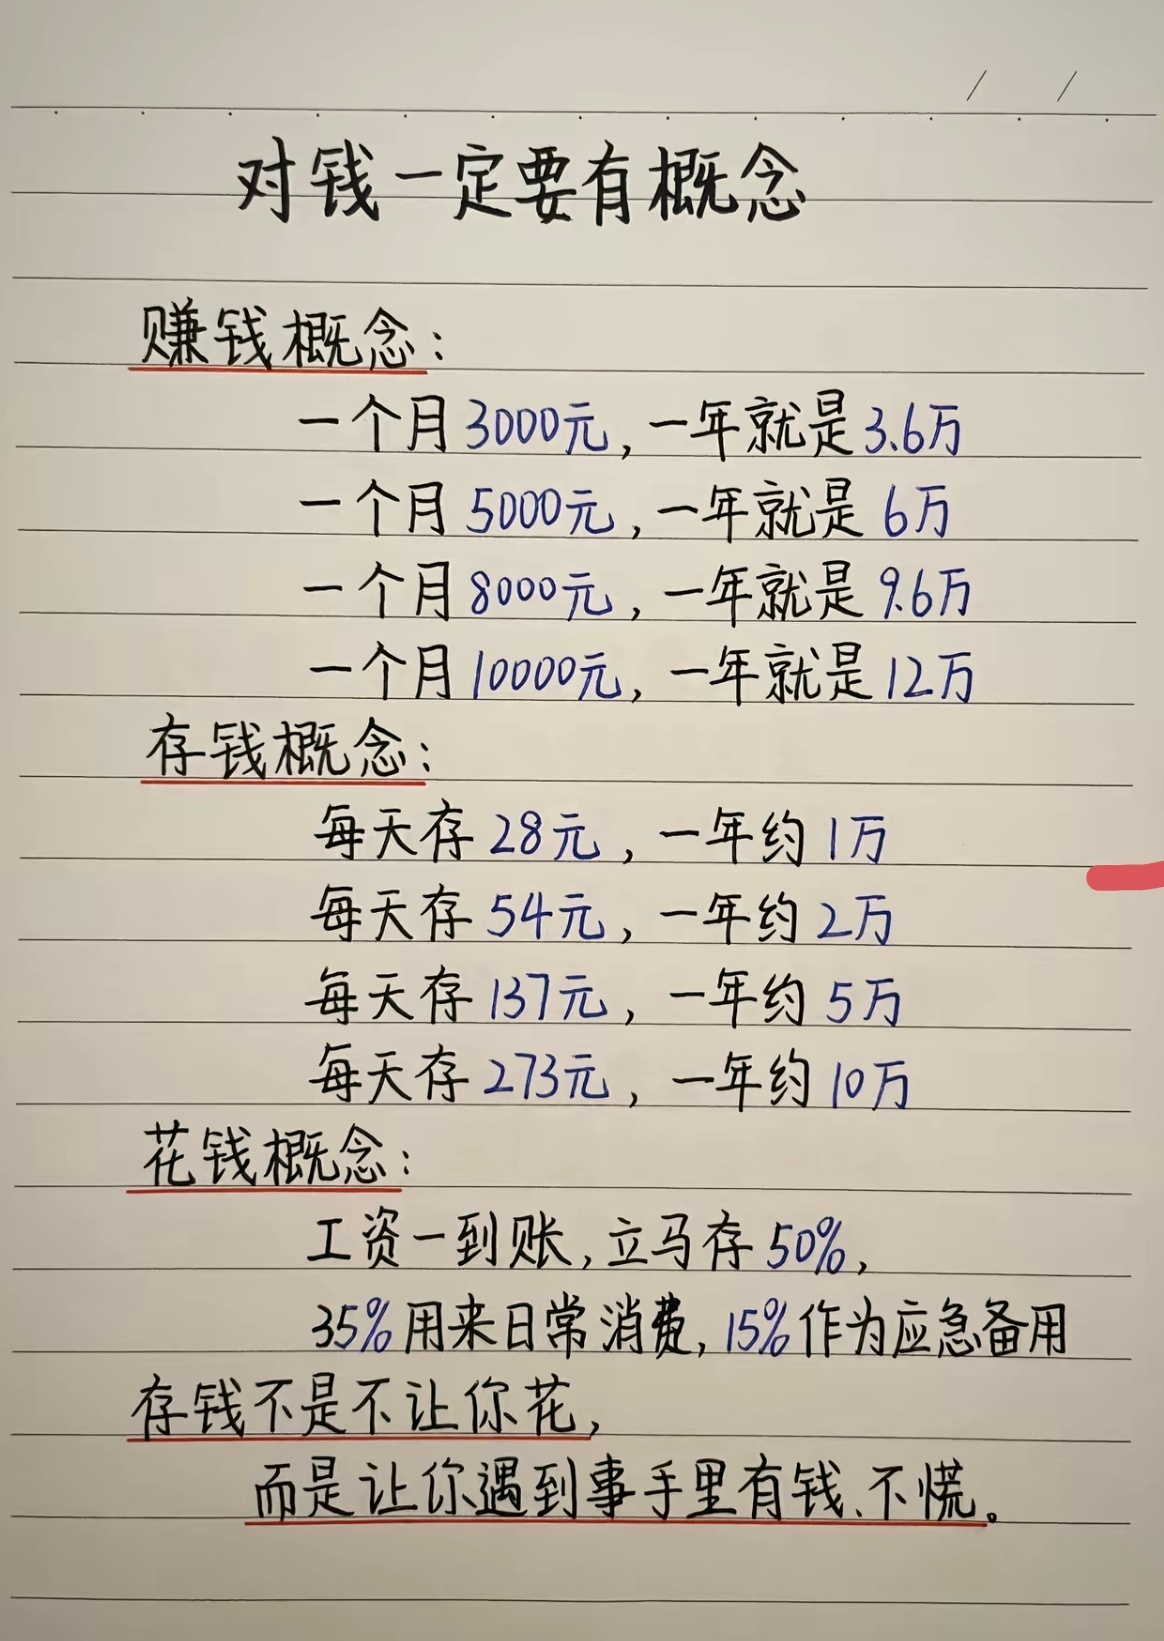 对钱一定要有概念
赚钱概念:
一个月3000元,一年就是3.6万
一个月5000元,一年就是6万
一个月8000元,一年就是9.6万
一个月10000元,一年就是12万
存钱概念:
每天存28元,一年约1万
每天存54元,一年约2万
每天存137元,一年约5万
每天存273元,一年约10万
花钱概念:
工资一到账,立马存50%,
35%用来日常消费,15%作为应急备用
存钱不是不让你花,
而是让你遇到事手里有钱、不慌。